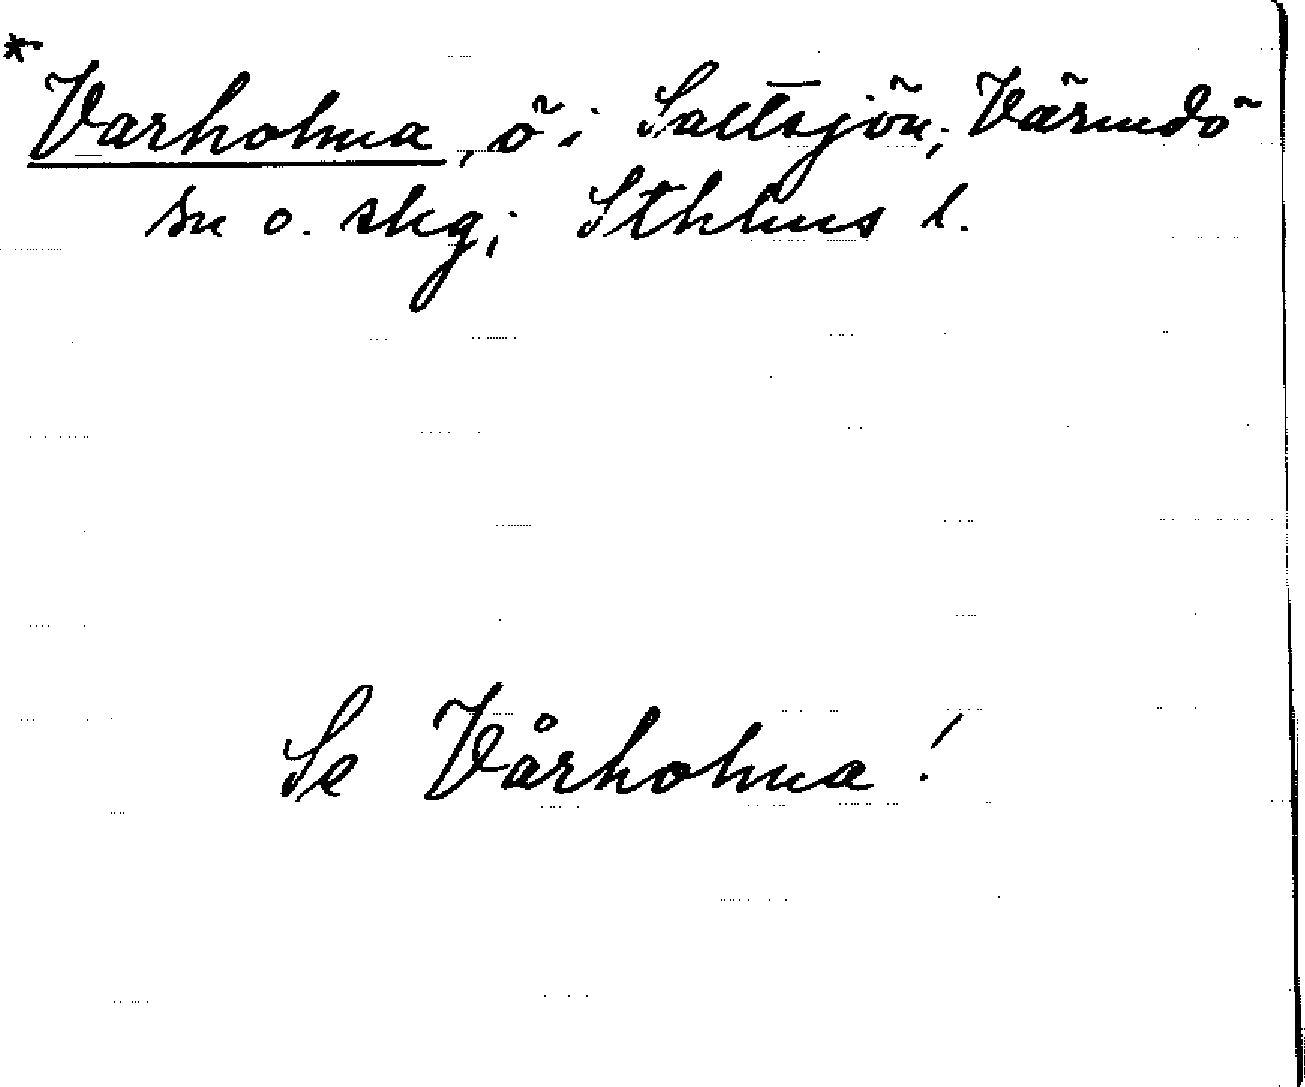 * Varholma, ö i Saltsjön; Värmdö
sn o. skg; Sthlms l.
Se Vårholma!